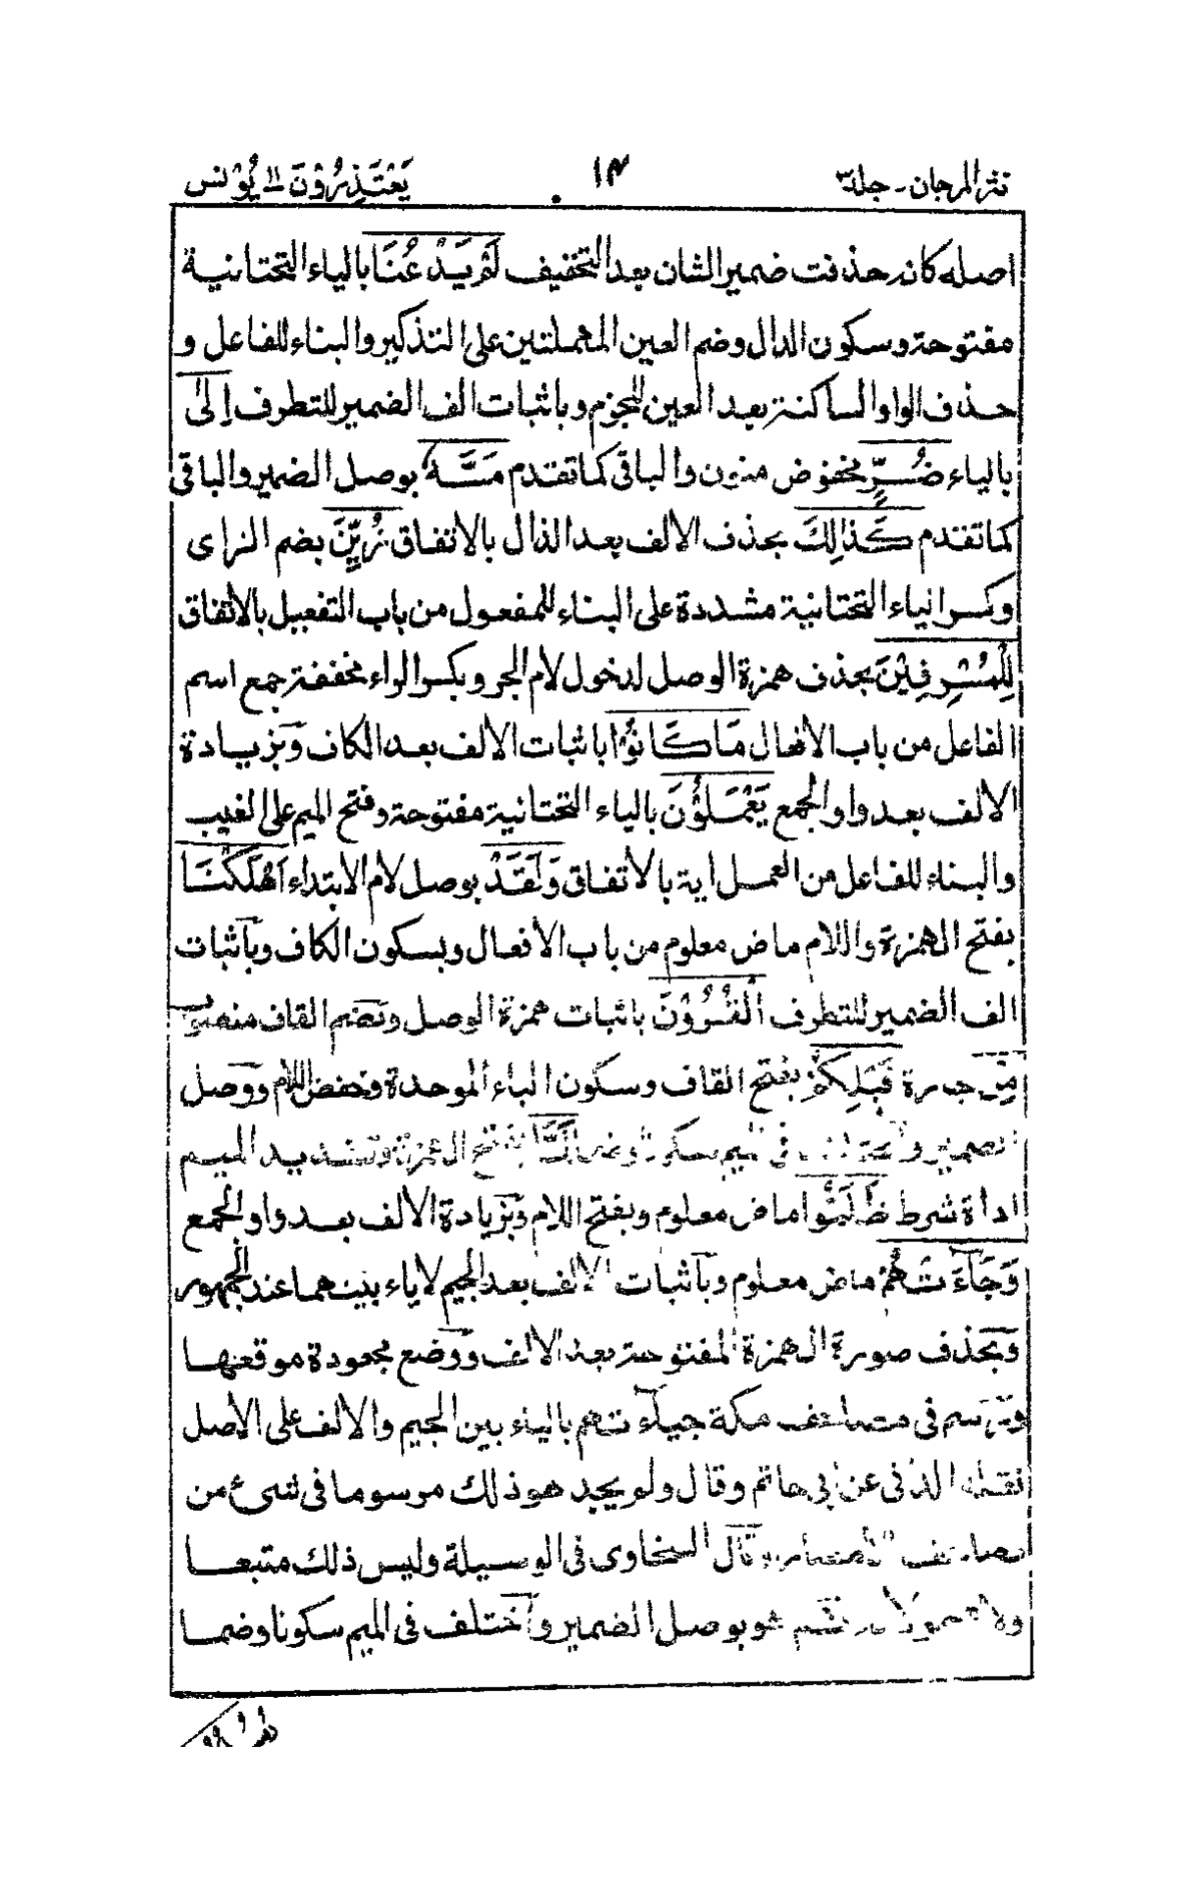 نثر المرجان - جلد ٣
١٤
يَعْتَذِرُوْنَ الى يُوْنس
اصله كانه حذفت ضمير الشان بعد التخفيف لَمْ يَدْعُنَا بالياء التحتانية
مفتوحة وسكون الدال وضم العين المهملتين على التذكير والبناء للفاعل و
حذف الواو الساكنة بعد العين للجزم وباثبات الف الضمير للتطرف اِلٰى
بالياء ضُرٍّ مخفوض منون والباقى كما تقدم مَسَّهٗ بوصل الضمير والباقى
كما تقدم كَذٰلِكَ بحذف الالف بعد الذال بالاتفاق زُيِّنَ بضم الزاى
وكسر الياء التحتانية مشددة على البناء للمفعول من باب التفعيل بالاتفاق
لِلْمُسْرِفِيْنَ بحذف همزة الوصل لدخول لام الجر وبكسر الراء مخففة جمع اسم
الفاعل من باب الافعال مَا كَانُوْا باثبات الالف بعد الكاف وبزيادة
الالف بعد واو الجمع يَعْمَلُوْنَ بالياء التحتانية مفتوحة وفتح الميم على الغيب
والبناء للفاعل من العمل اية بالاتفاق وَلَقَدْ بوصل لام الابتداء اَهْلَكْنَا
بفتح الهمزة واللام ماض معلوم من باب الافعال وبسكون الكاف وباثبات
الف الضمير للتطرف الْقُرُوْنَ باثبات همزة الوصل وبضم القاف منصوب
مِنْ جارة قَبْلِكُمْ بفتح القاف وسكون الباء الموحدة وخفض اللام ووصل
الضمير و فى الميم سكونا وضما لَمَّا بفتح اللام وتشديد الميم
اداة شرط ظَلَمُوْا ماض معلوم وبفتح اللام وبزيادة الالف بعد واو الجمع
وَجَآءَتْهُمْ ماض معلوم وباثبات الالف بعد الجيم لا ياء بينهما عند الجمهور
وبحذف صورة الهمزة المفتوحة بعد الالف ووضع مجعودة موقعها
وترسم فى مصاحف مكة جيآءتهم بالياء بين الجيم والالف على الاصل
نقله الدانى عن ابى حاتم وقال ولم يجد هو ذلك مرسوما فى شىء من
مصاحف الامصار وقال السخاوى فى الوسيلة وليس ذلك متبعا
ولا معمولا به هو بوصل الضمير واختلف فى الميم سكونا وضما